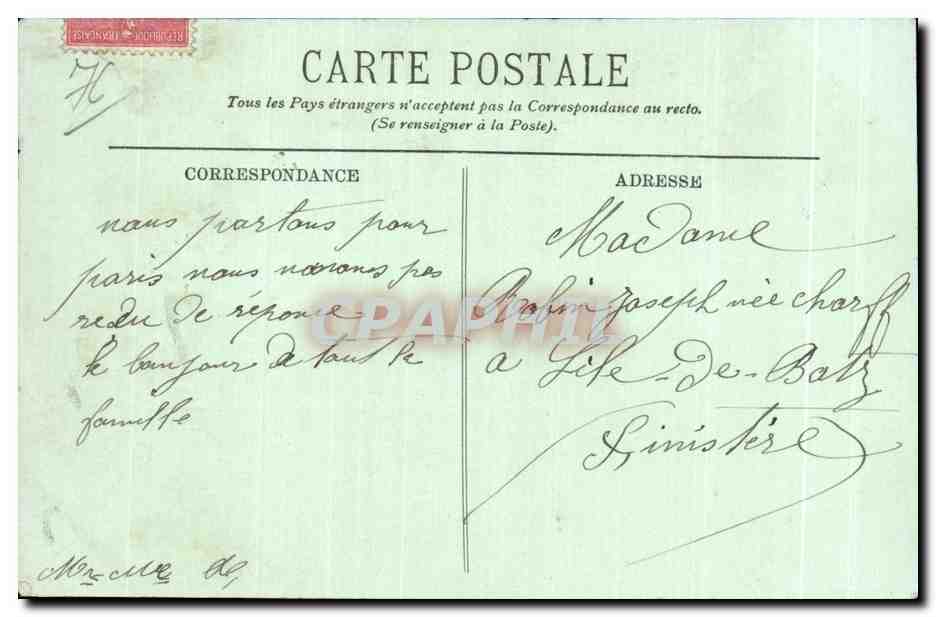 REPUBLIQUE FRANÇAISE
H
CARTE POSTALE
Tous les Pays étrangers n'acceptent pas la Correspondance au recto.
(Se renseigner à la Poste).
CORRESPONDANCE
nous partons pour
paris nous navons pas
redu de réponce
le bonjour a tout la
famille
Mr Me
ADRESSE
Madame
Robin Joseph née Charff
a Lile-de-Batz
Finistére
CPAPHIL